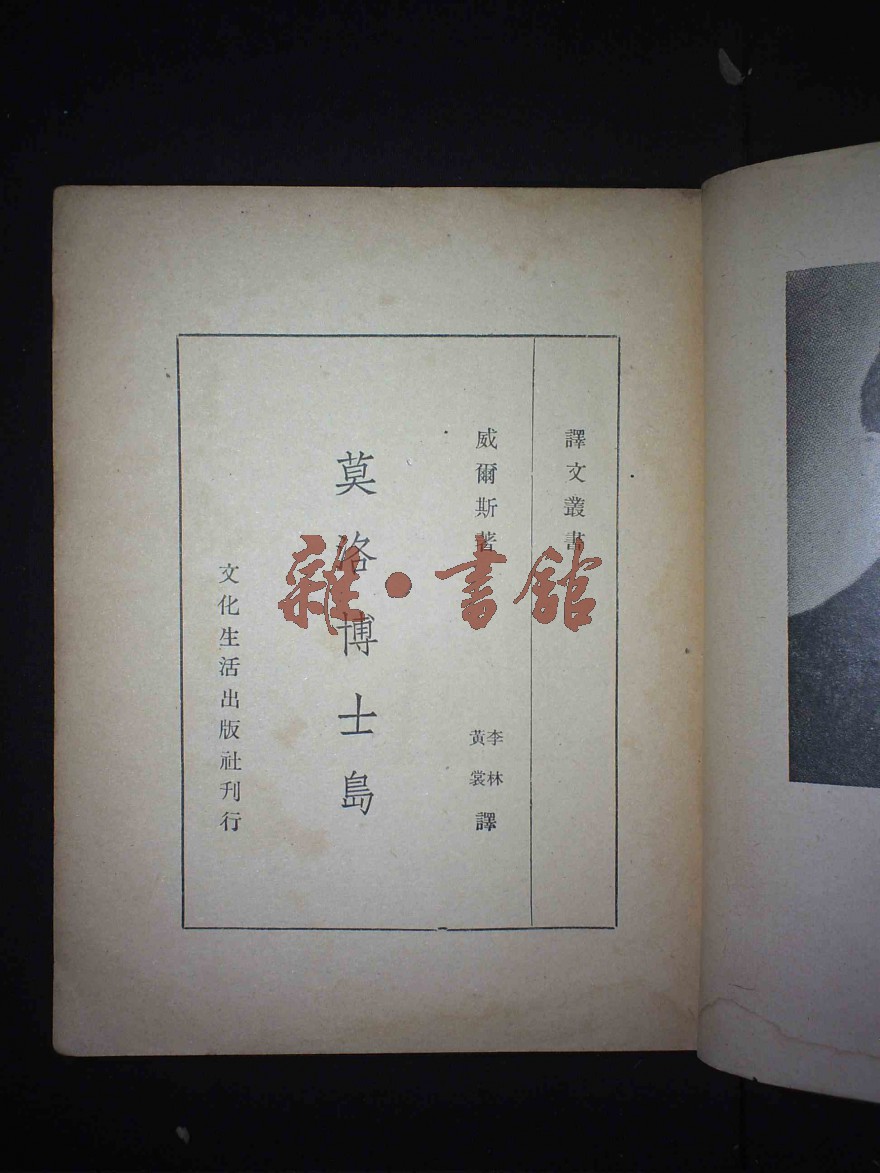 譯文叢書
威爾斯著
李林
黃裳
譯
莫洛博士島
文化生活出版社刊行
雜·書館